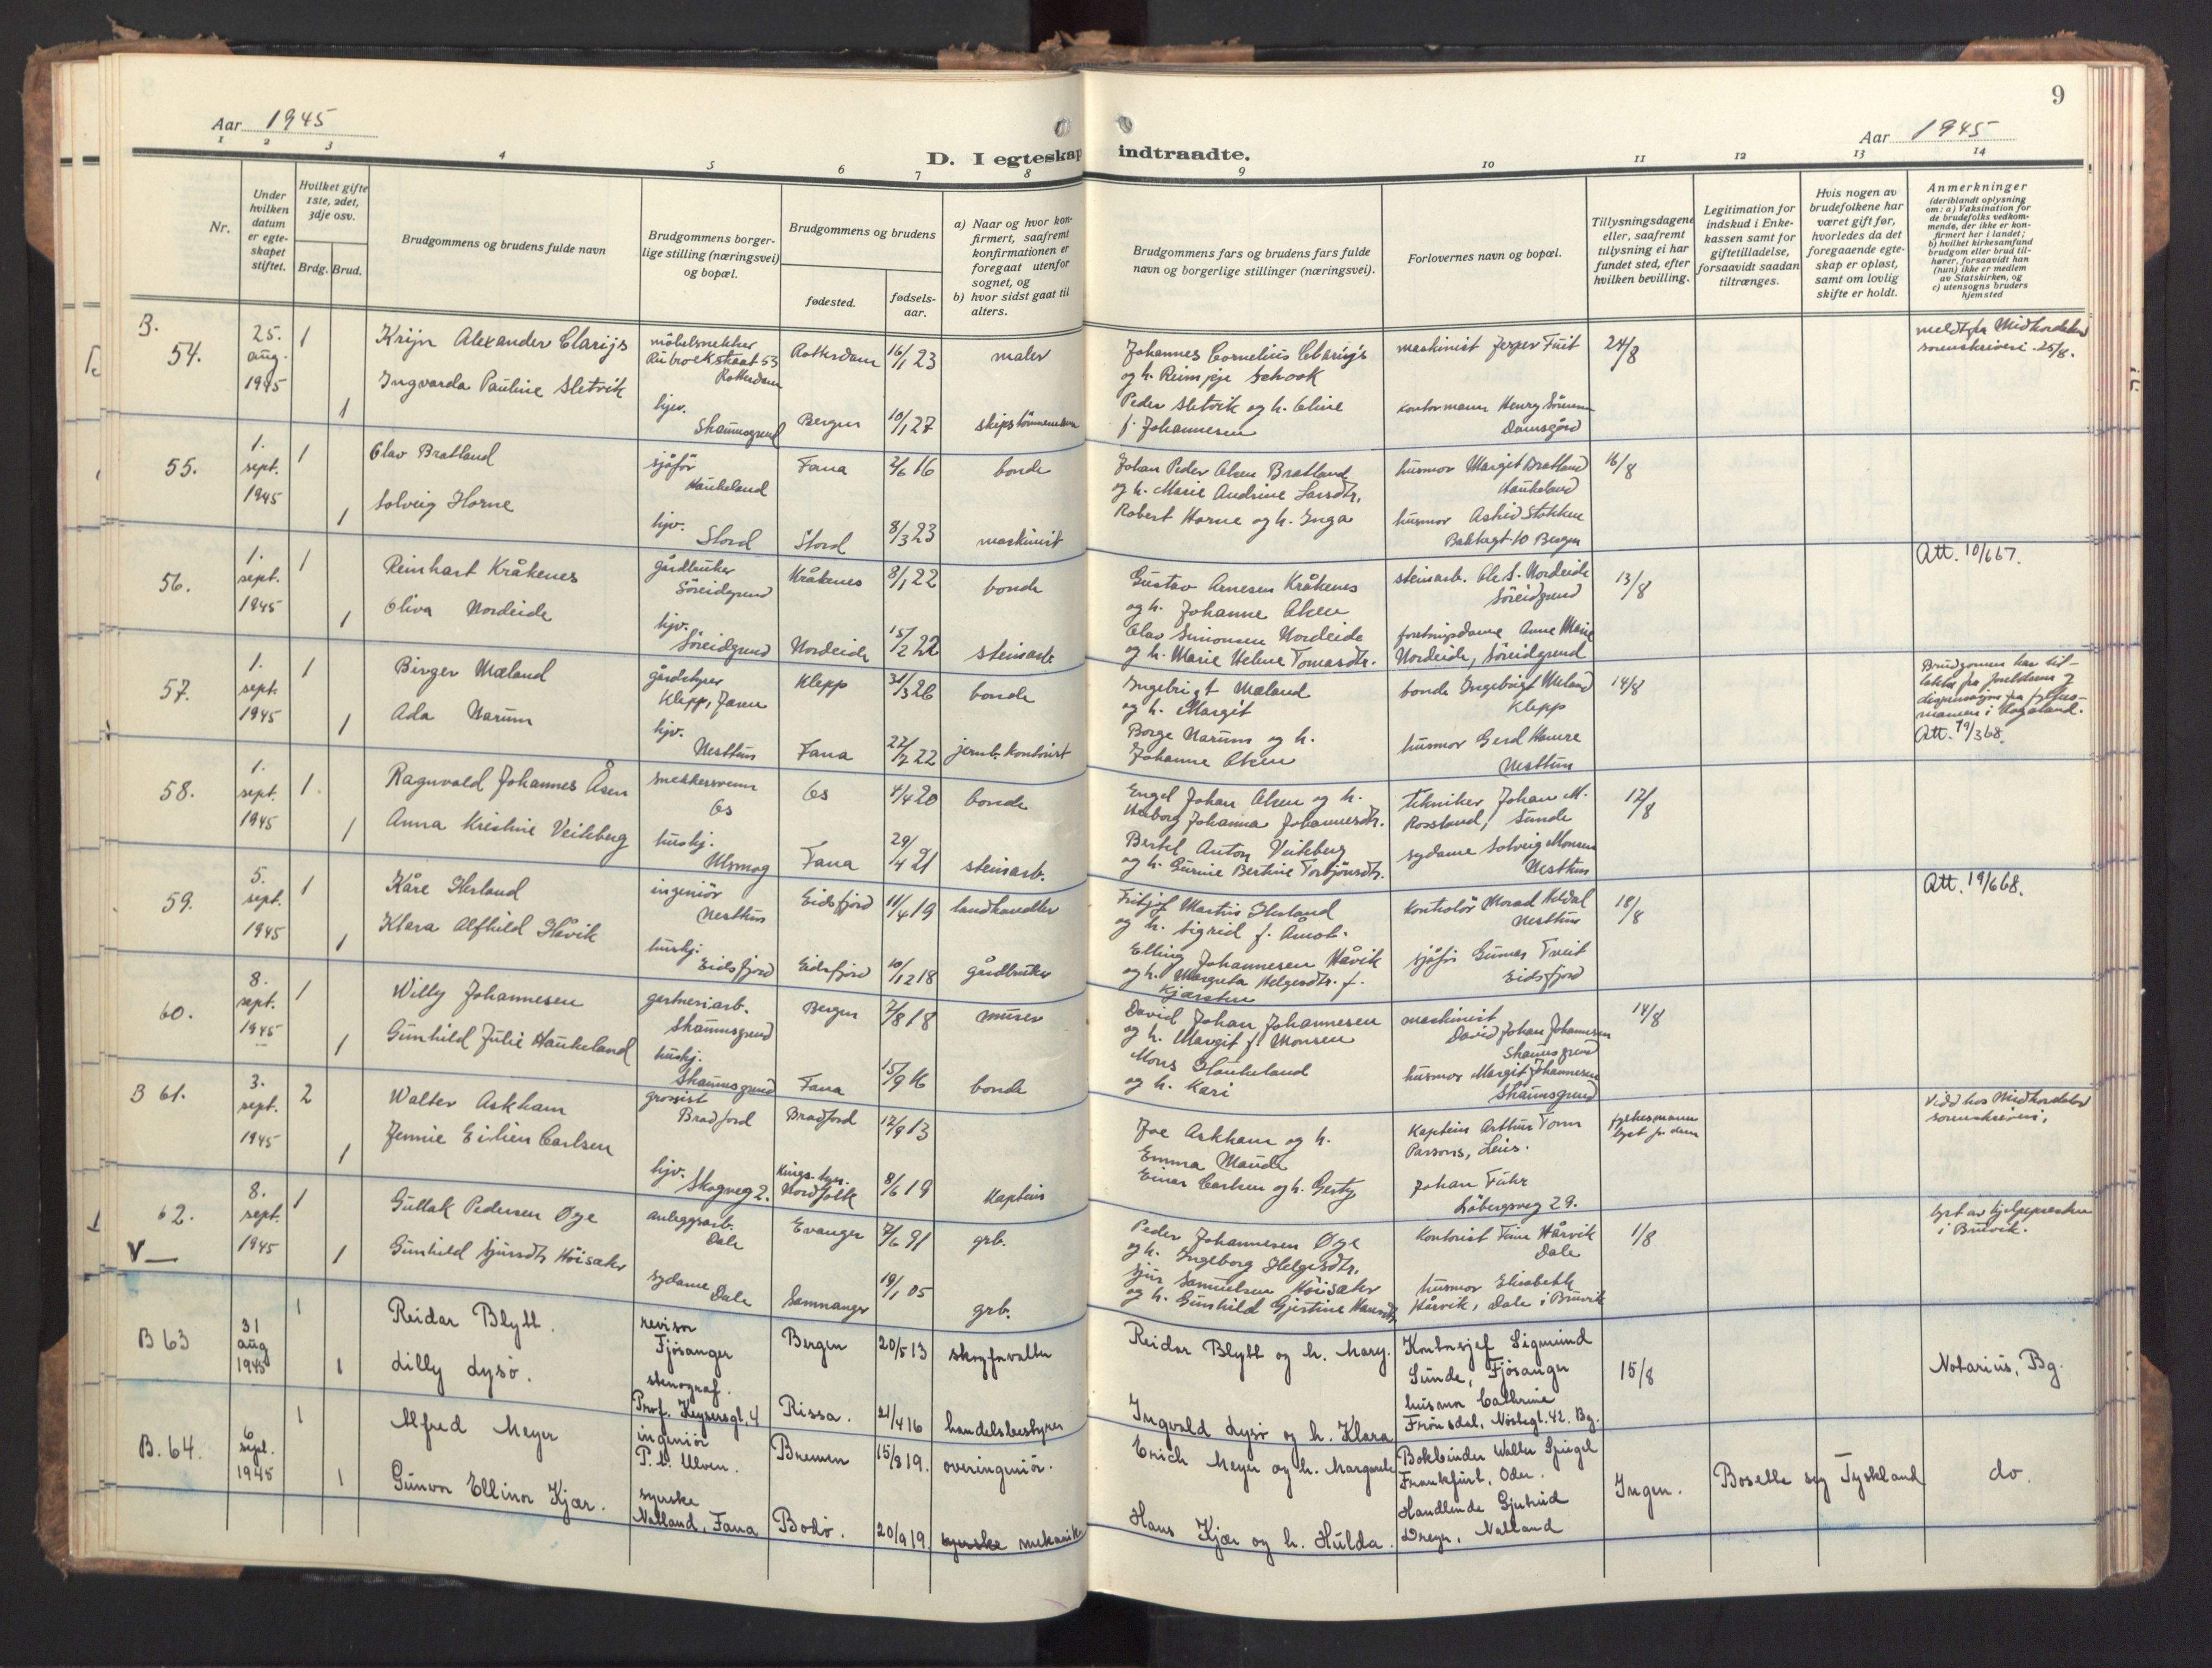 9
Aar 1945
Aar 1945
D. I egteskap indtraadte.
1 2 3 4 5 6 7 8 9 10 11 12 13 14
Nr.
Under hvilken datum er egteskapet stiftet.
Hvilket gifte 1ste, 2det, 3dje osv.
Brdg. Brud.
Brudgommens og brudens fulde navn
Brudgommens borgerlige stilling (næringsvei) og bopæl.
Brudgommens og brudens
fødested.
fødselsaar.
a) Naar og hvor konfirmert, saafremt konfirmationen er foregaat utenfor sognet, og
b) hvor sidst gaat til alters.
Brudgommens fars og brudens fars fulde navn og borgerlige stillinger (næringsvei).
Forlovernes navn og bopæl.
Tillysningsdagene eller, saafremt tilysning ei har fundet sted, efter hvilken bevilling.
Legitimation for indskud i Enkekassen samt for giftetilladelse, forsaavidt saadan tiltrænges.
Hvis nogen av brudefolkene har været gift før, hvorledes da det foregaaende egteskap er opløst, samt om lovlig skifte er holdt.
Anmerkninger
(deriblandt oplysning om: a) Vaksination for de brudefolks vedkommende, der ikke er konfirmert her i landet; b) hvilket kirkesamfund brudgom eller brud tilhører, forsaavidt han (hun) ikke er medlem av Statskirken, og c) utensogns bruders hjemsted
B. 54. 25. aug. 1945 1 1
Krijn Alexander Clarijs
Ingvarda Pauline Sletvik
møbelsnekker
Rubroekstraat 53
Rotterdam
hjv.
Skaunsgrend
Rotterdam 16/1 23 maler
Bergen 10/1 27 skipstømmermann
Johannes Cornelius Clarijs
og h. Reimpje Schook
Peder Sletvik og h. Oline
f. Johannesen
maskinist Jesper Fuit
kontormann Henry Sörensen
Damsgård
24/8
meldt fra Midhordland
sorenskriveri 25/8.
55. 1. sept. 1945 1 1
Olav Bratland
Solveig Horne
sjåför
Haukeland
hjv.
Stord
Fana 2/6 16 bonde
Stord 8/3 23 maskinist
Johan Peder Olsen Bratland
og h. Marie Andrine Larsdtr.
Robert Horne og h. Inga
husmor Margit Bratland
Haukeland
husmor Astrid Stokken
Baktagt 10 Bergen
16/8
56. 1. sept. 1945 1 1
Reinhart Kråkenes
Oliva Nordeide
gårdbruker
Söreidgrend
hjv.
Söreidgrend
Kråkenes 8/1 22 bonde
Nordeide 15/2 22 steinarb.
Gustav Arnesen Kråkenes
og h. Johanne Olsen
Olav Simonsen Nordeide
og h. Marie Helene Tomasdtr.
steinarb. Ole S. Nordeide
Söreidgrend
forretningsdame Anne Marie
Nordeide, Söreidgrend
13/8
Att. 10/6 67.
57. 1. sept. 1945 1 1
Birger Mæland
Ada Narum
gårdstyrer
Klepp, Jæren
hjv.
Nesttun
Klepp 31/3 26 bonde
Fana 22/7 22 jernb. kontorist
Ingebrigt Mæland
og h. Margit
Borge Narum og h.
Johanne Olsen
bonde Ingebrigt Mæland
Klepp
husmor Gerd Haure
Nesttun
14/8
Brudgomen har til-
latelse fra foreldrene og
dispensasjon fra fylkes-
mannen i Rogaland.
Att. 19/3 68.
58. 1. sept. 1945 1 1
Ragnvald Johannes Åsen
Anna Kristine Veileberg
snekkersvenn
Os
hushj.
Ulsmåg
Os 4/4 20 bonde
Fana 29/4 21 steinarb.
Engel Johan Olsen og h.
Valborg Johanna Johannesdtr.
Bertel Anton Veileberg
og h. Gurine Bertine Torbjörnsdtr.
tekniker Johan M.
Rossland, Sunde
sydame Solveig Monsen
Nesttun
12/8
59. 5. sept. 1945 1 1
Kåre Herland
Klara Alfhild Håvik
ingeniör
Nesttun
hushj.
Eidsfjord
Eidsfjord 11/4 19 landhandler
Eidsfjord 10/12 18 gårdbruker
Fritjof Martin Herland
og h. Sigrid f. Åmot.
Elling Johannesen Håvik
og h. Margreta Helgesdtr. f.
Kjærsten
kontrolör Morad Heldal
Nesttun
sjåför Gunnar Tveit
Eidsfjord
18/8
Att. 19/6 68.
60. 8. sept. 1945 1 1
Willy Johannesen
Gunhild Julie Haukeland
gartneriarb.
Skaunsgrend
hushj.
Skaunsgrend
Bergen 7/8 18 murer
Fana 15/9 16 bonde
David Johan Johannesen
og h. Margit f. Monsen
Mons Haukeland
og h. Kari
maskinist
David Johan Johannesen
Skaunsgrend
husmor Margit Johannesen
Skaunsgrend
14/8
B 61. 3. sept. 1945 2 1
Walter Askham
Jennie Eirlien Carlsen
grossist
Bradford
hjv.
Skogveg 2.
Bradford 12/9 13
Kings-Lyn.
Nordfolk 8/6 19 Kaptein
Joe Askham og h.
Emma Maude
Einar Carlsen og h. Gerty
Kaptein Arthur Tom
Parsons, Leis.
Johan Führ
Löbergsveg 29.
fylkesmann
lyst fr dem
Vidd hos Midhordland
sorenskriveri,
62. V— 8. sept. 1945 1 1
Gullak Pedersen Øye
Gunhild Sjursdtr Höisæter
anleggsarb.
Dale
sydame
Dale
Evanger 7/6 91 grb.
Samnanger 19/1 05 grb.
Peder Johannesen Øye
og h. Ingeborg Helgesdtr.
Sjur Samuelsen Höisæter
og h. Gunhild Gjertine Hansdtr.
Kontorist Finn Hårvik
Dale
husmor Elisabeth
Hårvik, Dale i Bruvik
1/8
lyst av hjelpepresten
i Bruvik.
B 63 31 aug 1945 1 1
Reidar Blytt.
Lilly Lysø.
revisor
Fjösanger
stenograf.
Prof. Keysersgt. 4
Bergen 20/5 13 skogforvalter
Rissa. 21/4 16 handelsbestyrer
Reidar Blytt og h. Mary.
Ingvald Lysø og h. Klara
Kontorsjef Sigmund
Sunde, Fjösanger
husmor Cathrine
Frönsdal, Nöstegt. 42. Bg.
15/8
Notarius, Bg.
B. 64. 6 sept. 1945 1 1
Alfred Meyer
Gunvor Ellinor Kjær.
ingeniör
P.t. Ulven.
syerske
Natland, Fana
Bremen 15/8 19. overingeniör.
Bodø. 20/9 19. syerske mekanik.
Erich Meyer og h. Margarete
Hans Kjær og h. Hulda.
Bokbinder Walter Spiegel
Frankfurt, Oder.
Handlende Gjertrud
Dreyer, Natland
Ingen.
Bosette seg Tyskland
do.